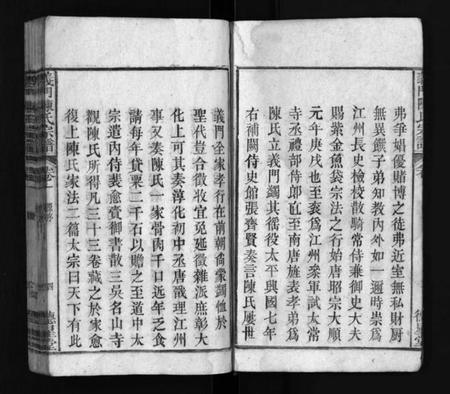 弗爭娟優賭博之徒弗近室無私財厨
無異饌子弟知教內外如一逥時崇爲
江州長史檢校散騎常侍兼御史大夫
賜紫金魚袋宗法之行始唐昭宗大順
元年庚戌也至衮爲江州叅軍試太常
寺丞禮部侍郎直至南唐旌表孝弟爲
陳氏立義門蠲其徭役太平興國七年
右補闕侍史館張齊賢奏言陳氏屢世
義門陳氏宗譜
義門全家孝行在前朝尚蒙蠲恤於
聖代豈合徵收宜免延徵雜派庶彰大
化上可其奏淳化初中丞唐戬理江州
事又奏陳氏一家骨肉千口近年乏食
請每年貸粟二千石以贍之至道中太
宗遣內侍裴愈賫御書散三吳名山寺
觀陳氏所凡三十三卷藏之於家愈
復上陳氏家法二篇太宗曰天下有此
義門陳氏宗譜
德星堂